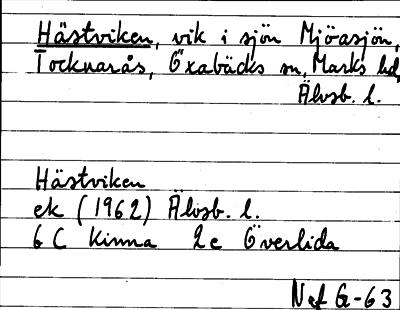 Hästviken, vik i sjön Mjöasjön,
Tocknarås, Öxabäcks sn, Marks hd,
Älvsb. l.
Hästviken
ek (1962) Älvsb. l.
6 C Kinna 2 e Överlida
Nef G-63